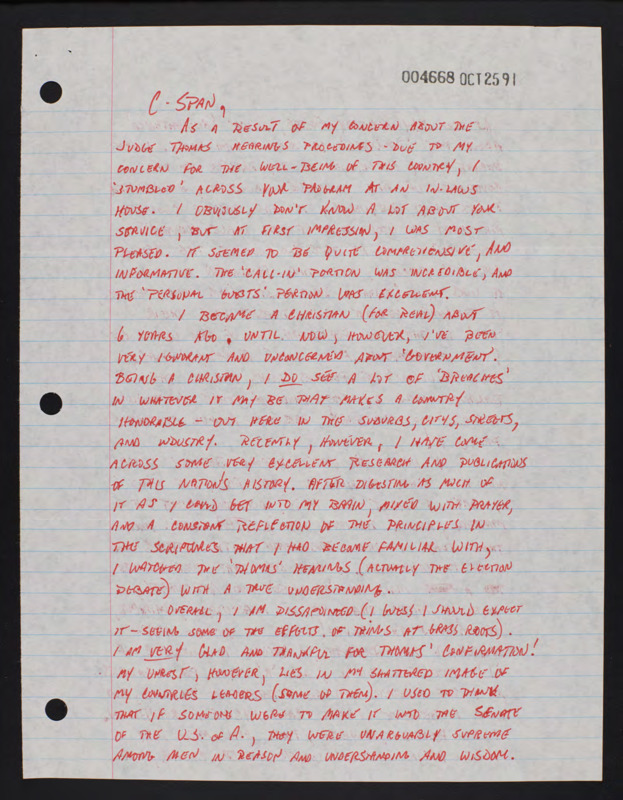 004668 OCT 25 91
C-SPAN,
AS A RESULT OF MY CONCERN ABOUT THE
JUDGE THOMAS HEARINGS PROCEDINGS - DUE TO MY
CONCERN FOR THE WELL-BEING OF THIS COUNTRY, I
'STUMBLED' ACROSS YOUR PROGRAM AT AN IN-LAWS
HOUSE. I OBVIOUSLY DON'T KNOW A LOT ABOUT YOUR
SERVICE, BUT AT FIRST IMPRESSION, I WAS MOST
PLEASED. IT SEEMED TO BE QUITE COMPREHENSIVE, AND
INFORMATIVE. THE 'CALL-IN' PORTION WAS INCREDIBLE, AND
THE 'PERSONAL GUESTS' PORTION WAS EXCELLENT.
I BECAME A CHRISTIAN (FOR REAL) ABOUT
6 YEARS AGO. UNTIL NOW, HOWEVER, I'VE BEEN
VERY IGNORANT AND UNCONCERNED ABOUT 'GOVERNMENT'.
BEING A CHRISTIAN, I DO SEE A LOT OF 'BREACHES'
IN WHATEVER IT MAY BE THAT MAKES A COUNTRY
HONORABLE - OUT HERE IN THE SUBURBS, CITYS, STREETS,
AND INDUSTRY. RECENTLY, HOWEVER, I HAVE COME
ACROSS SOME VERY EXCELLENT RESEARCH AND PUBLICATIONS
OF THIS NATION'S HISTORY. AFTER DIGESTING AS MUCH OF
IT AS I COULD GET INTO MY BRAIN, MIXED WITH PRAYER,
AND A CONSTANT REFLECTION OF THE PRINCIPLES IN
THE SCRIPTURES THAT I HAD BECOME FAMILIAR WITH,
I WATCHED THE 'THOMAS' HEARINGS (ACTUALLY THE ELECTION
DEBATE) WITH A TRUE UNDERSTANDING.
OVERALL, I AM DISSAPOINTED (I GUESS I SHOULD EXPECT
IT - SEEING SOME OF THE EFFECTS OF THINGS AT GRASS ROOTS).
I AM VERY GLAD AND THANKFUL FOR THOMAS' CONFIRMATION!
MY UNREST, HOWEVER, LIES IN MY SHATTERED IMAGE OF
MY COUNTRIES LEADERS (SOME OF THEM). I USED TO THINK
THAT IF SOMEONE WERE TO MAKE IT INTO THE SENATE
OF THE U.S. OF A., THEY WERE UNARGUABLY SUPREME
AMONG MEN IN REASON AND UNDERSTANDING AND WISDOM.